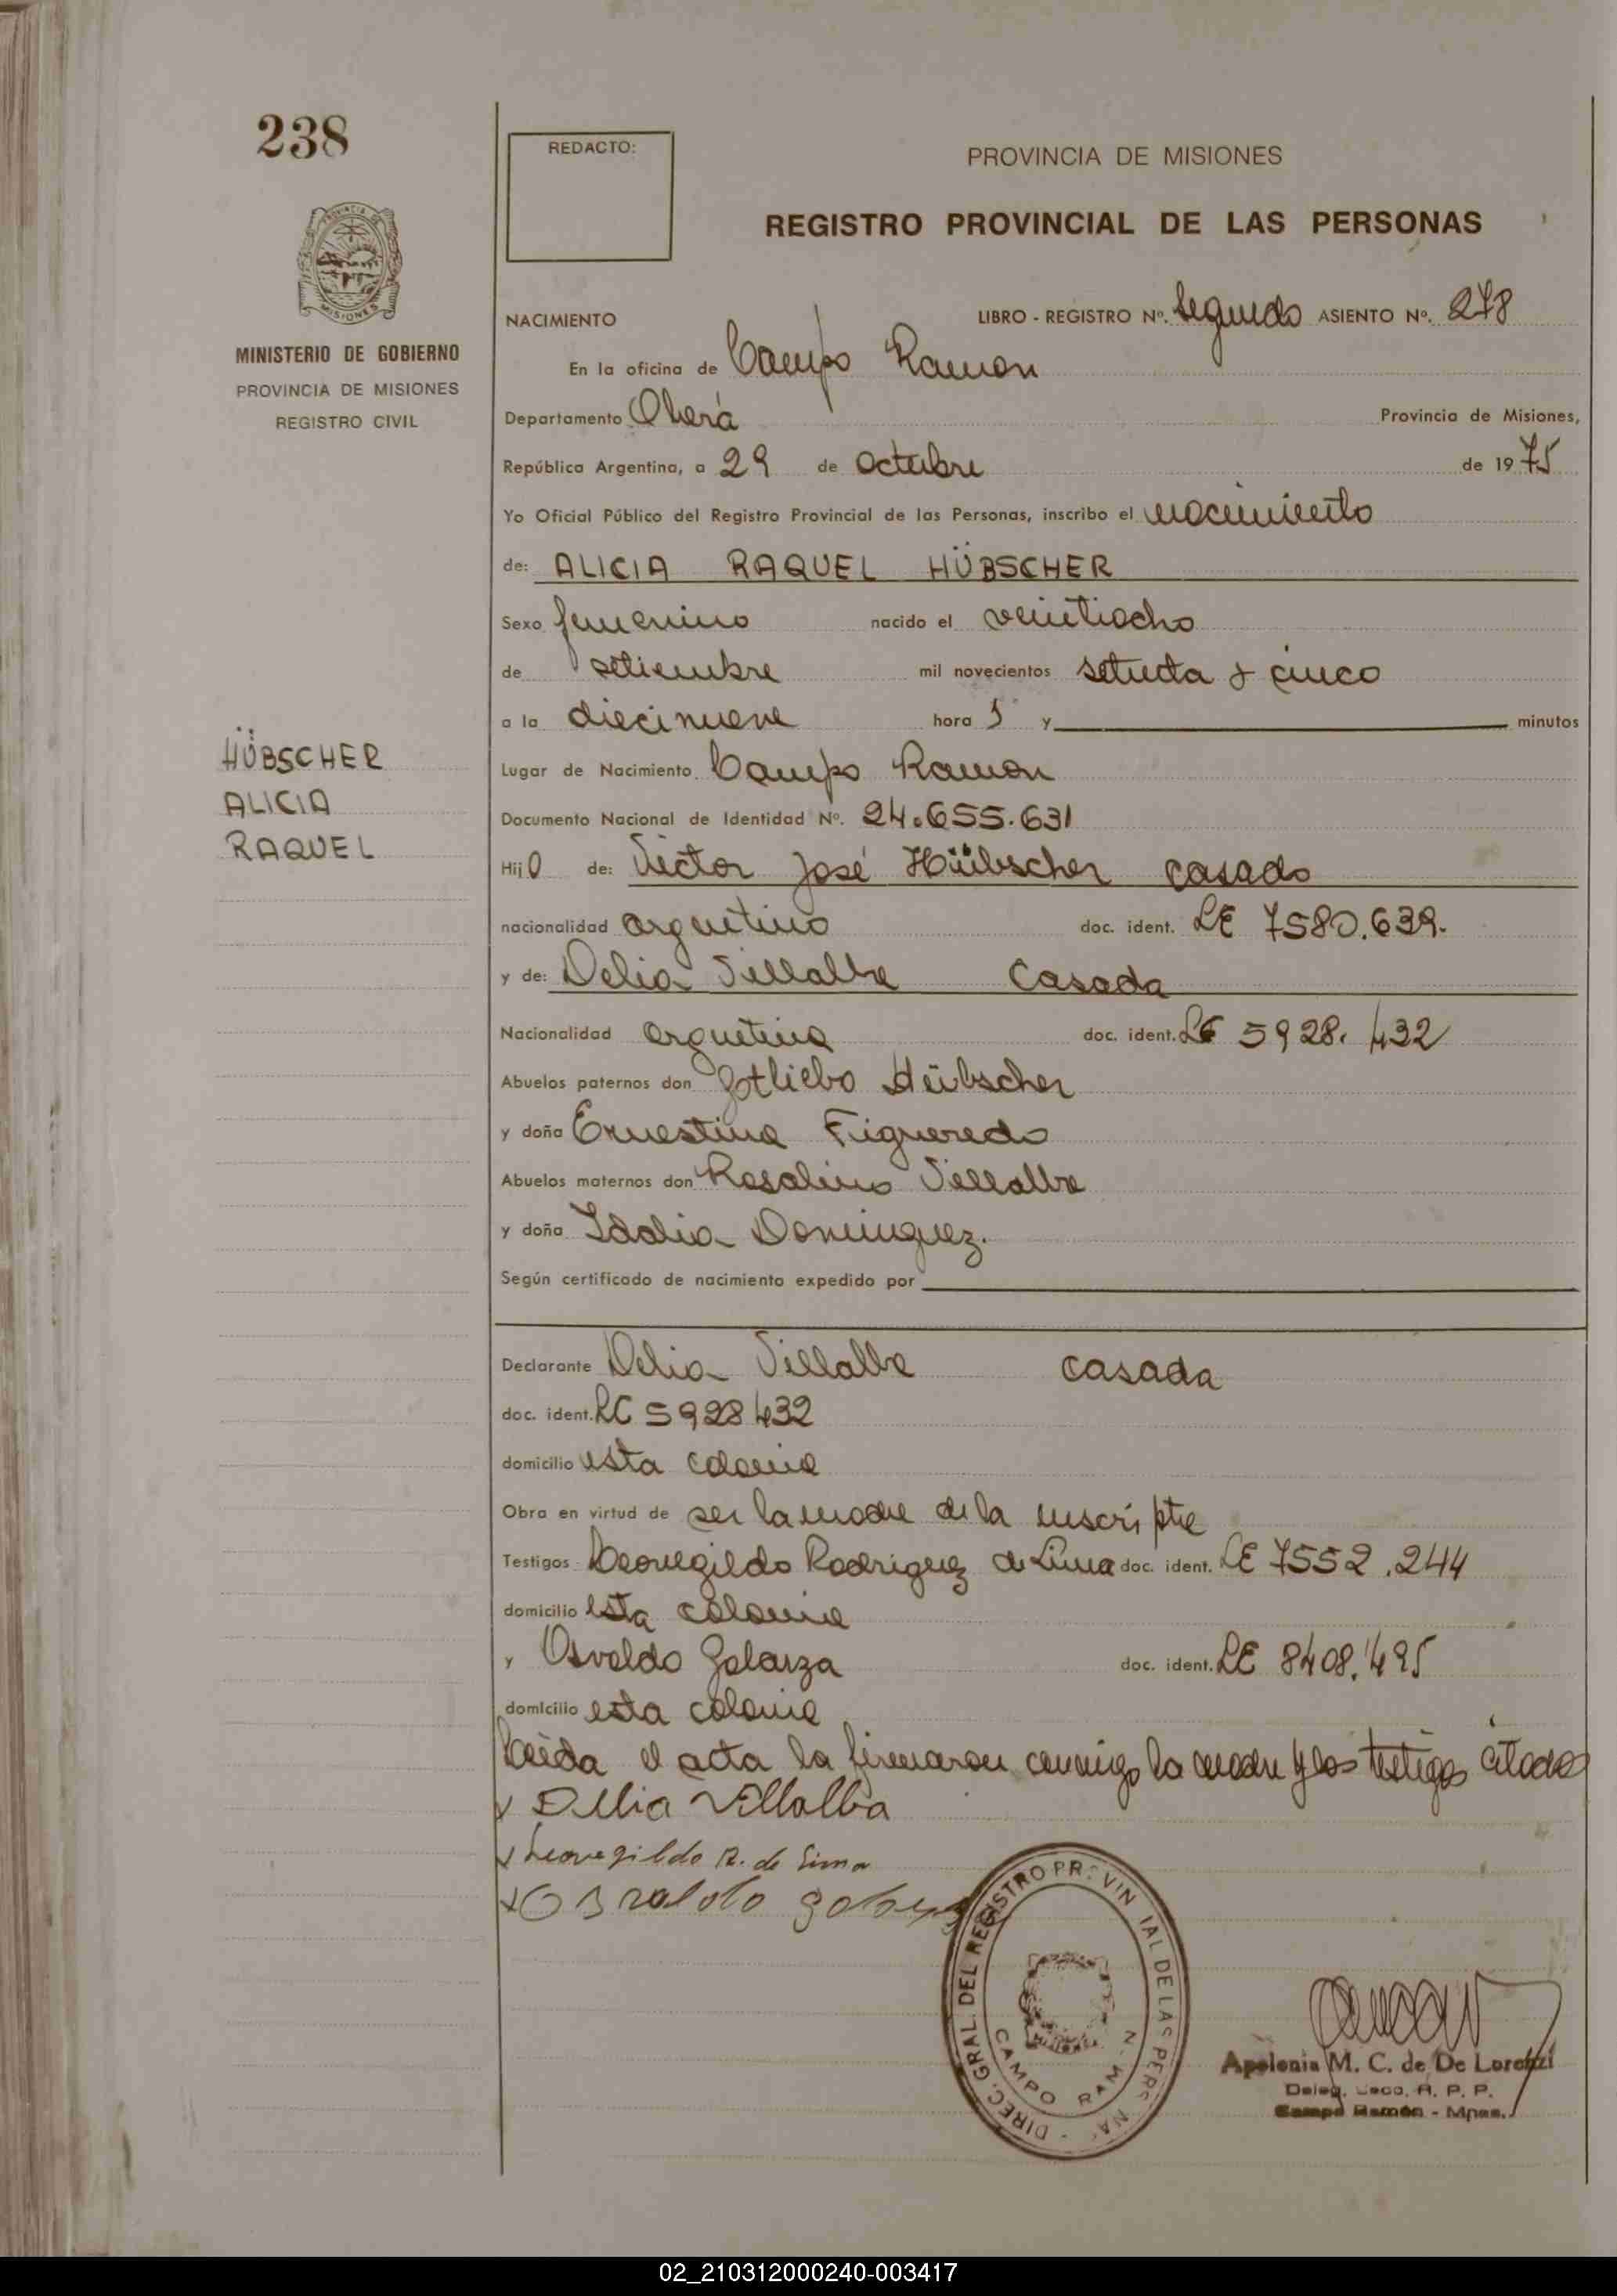 238
REDACTO:
PROVINCIA DE MISIONES
REGISTRO PROVINCIAL DE LAS PERSONAS
MISIONES
MINISTERIO DE GOBIERNO
PROVINCIA DE MISIONES
REGISTRO CIVIL
NACIMIENTO LIBRO - REGISTRO Nº. Segundo ASIENTO Nº. 278
En la oficina de Campo Ramon
Departamento Oberá Provincia de Misiones,
República Argentina, a 29 de octubre de 1975
Yo Oficial Público del Registro Provincial de las Personas, inscribo el nacimiento
de: ALICIA RAQUEL HÜBSCHER
Sexo femenino nacido el veintiocho
de setiembre mil novecientos setenta y cinco
a la diecinueve hora s y minutos
HÜBSCHER
ALICIA
RAQUEL
Lugar de Nacimiento Campo Ramon
Documento Nacional de Identidad Nº. 24.655.631
Hijo de: Victor José Hüübscher casado
nacionalidad argentino doc. ident. LE 7580.639.
y de: Delia Villalba Casada
Nacionalidad argentina doc. ident. LC 5928.432
Abuelos paternos don Gotliebo Hübscher
y doña Ernestina Figueredo
Abuelos maternos don Rosalino Villalba
y doña Idalia Dominguez.
Según certificado de nacimiento expedido por
Declarante Delia Villalba casada
doc. ident. LC 5928432
domicilio esta colonia
Obra en virtud de ser la madre de la inscripta
Testigos Leovegildo Rodriguez de Lima doc. ident. LE 7552.244
domicilio esta colonia
y Osvaldo Galarza doc. ident. LE 8408.495
domicilio esta colonia
Leida el acta la firmaron conmigo la madre y los testigos citados
x Delia Villalba
x Leovegildo R. de Lima
x Osvaldo galarza
DIREC. GRAL. DEL REGISTRO PROVINCIAL DE LAS PERSONAS
CAMPO RAMON
Apolonia M. C. de De Lorenzi
Deleg. R. P. P.
Campo Ramón - Mnes.
02_210312000240-003417